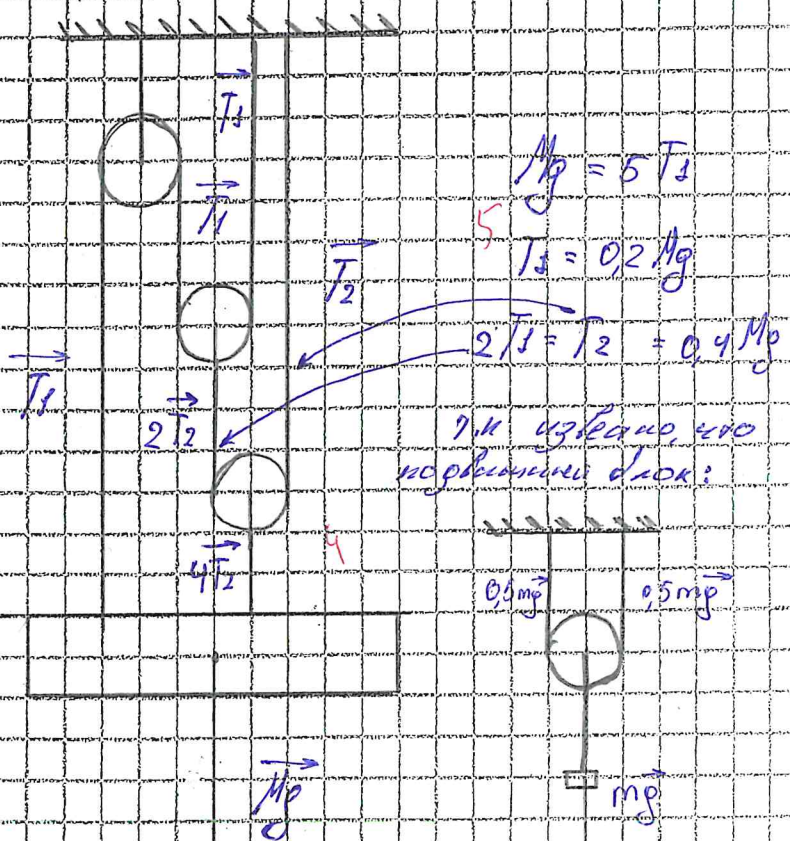 T1
T1
T2
T1
2T2
4T2
Mg
Mg = 5 T1
5
T1 = 0,2 Mg
2 T1 = T2 = 0,4 Mg
т.к известно, что
подвижный блок:
4
0,5mg
0,5mg
mg